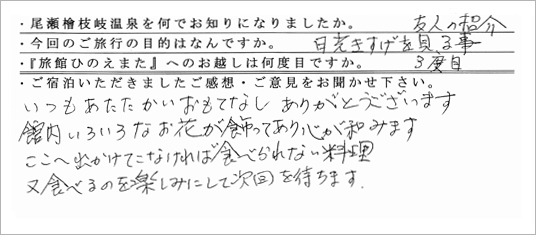 ・尾瀬檜枝岐温泉を何でお知りになりましたか。 友人の紹介
・今回のご旅行の目的はなんですか。 日光きすげを見る事
・『旅館ひのえまた』へのお越しは何度目ですか。 3度目
・ご宿泊いただきましたご感想・ご意見をお聞かせ下さい。
いつもあたたかいおもてなし ありがとうございます
館内いろいろなお花が飾ってあり心が和みます
ここへ出かけてこなければ食べられない料理
又食べるのを楽しみにして次回を待ちます.